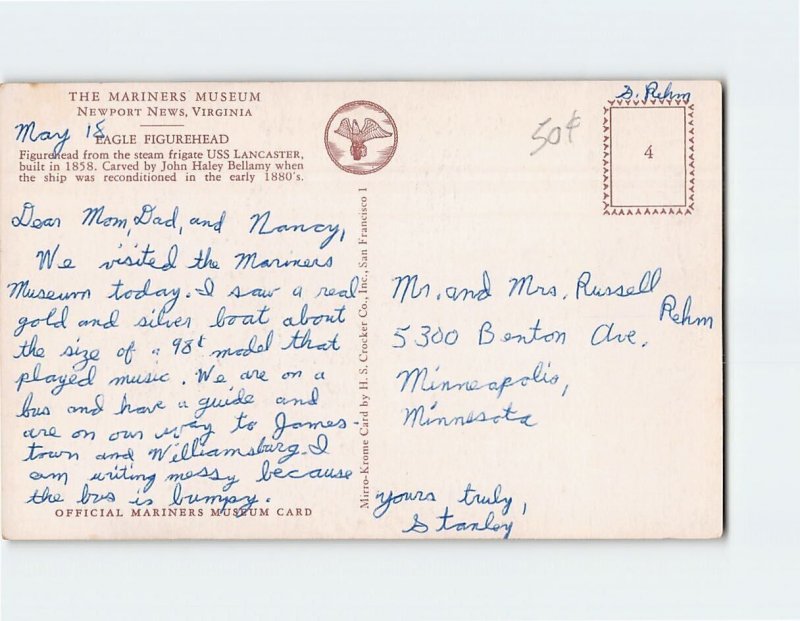 THE MARINERS MUSEUM
NEWPORT NEWS, VIRGINIA
May 18
EAGLE FIGUREHEAD
Figurehead from the steam frigate USS LANCASTER,
built in 1858. Carved by John Haley Bellamy when
the ship was reconditioned in the early 1880's.
Dear Mom, Dad, and Nancy,
We visited the Mariners
Museum today. I saw a real
gold and silver boat about
the size of a 98¢ model that
played music. We are on a
bus and have a guide and
are on our way to James-
town and Williamsburg. I
am writing messy because
the bus is bumpy.
OFFICIAL MARINERS MUSEUM CARD
Mirro-Krome Card by H. S. Crocker Co., Inc., San Francisco 1
50¢
S. Rehm
4
Mr. and Mrs. Russell
Rehm
5300 Benton Ave.
Minneapolis,
Minnesota
yours truly,
Stanley